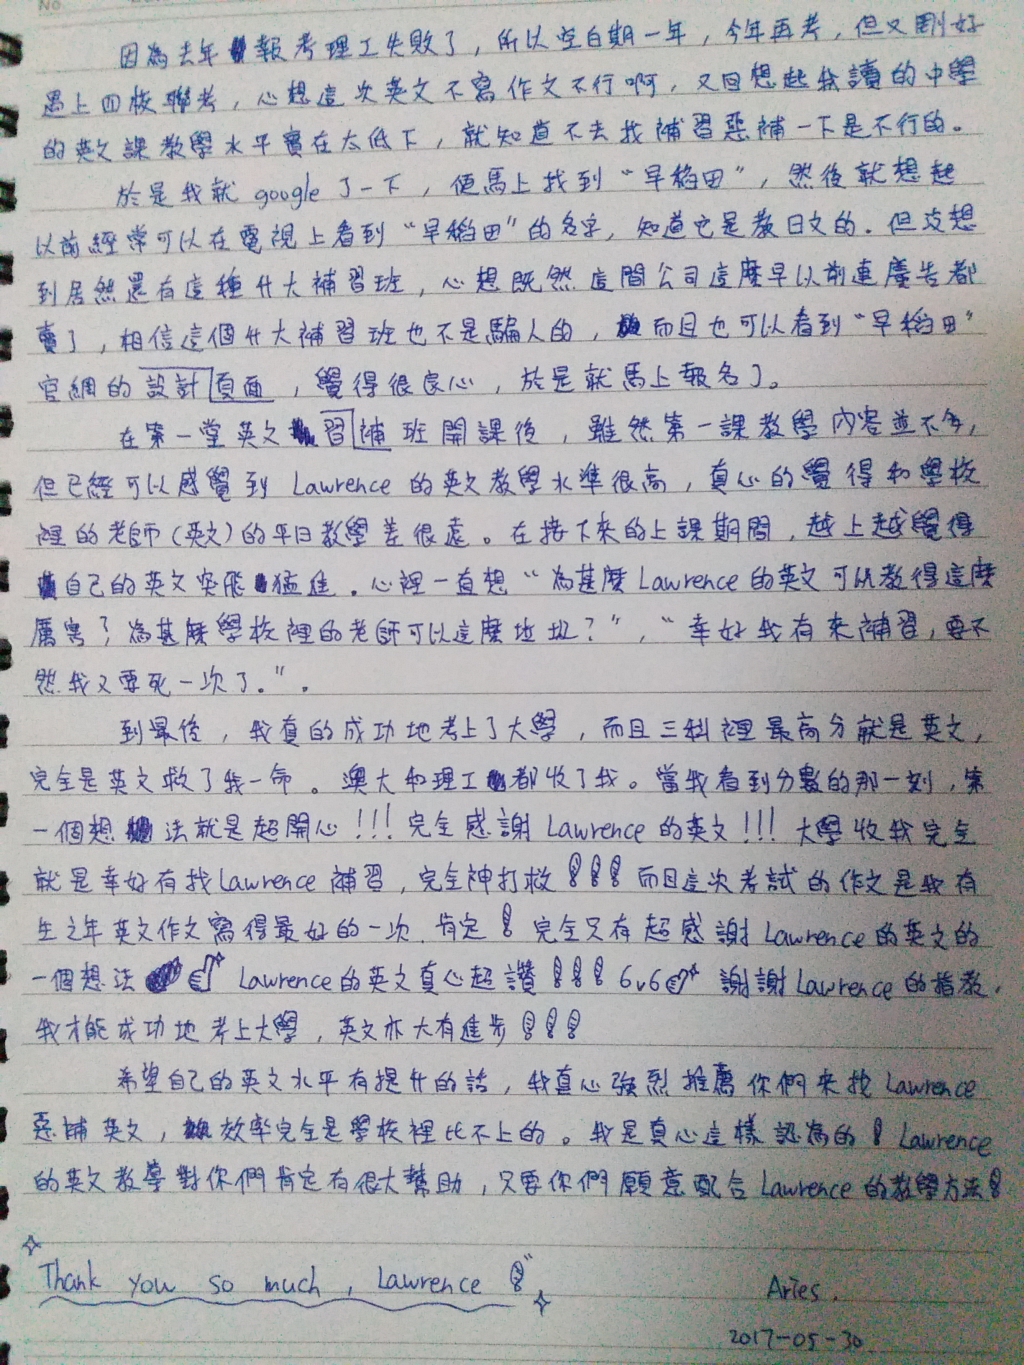 No
因為去年報考理工失敗了，所以空白期一年，今年再考，但又剛好
遇上四校聯考，心想這次英文不寫作文不行啊，又回想起我讀的中學
的英文課教學水平實在太低下，就知道不去找補習惡補一下是不行的。
於是我就google了一下，便馬上找到“早稻田”，然後就想起
以前經常可以在電視上看到“早稻田”的名字，知道它是教日文的。但沒想
到居然還有這種升大補習班，心想既然這間公司這麼早以前連廣告都
賣了，相信這個升大補習班也不是騙人的，而且也可以看到“早稻田”
官網的設計頁面，覺得很良心，於是就馬上報名了。
在第一堂英文習補班開課後，雖然第一課教學內容並不多，
但已經可以感覺到Lawrence的英文教學水準很高，真心的覺得和學校
裡的老師(英文)的平日教學差很遠。在接下來的上課期間，越上越覺得
自己的英文突飛猛進。心裡一直想“為甚麼Lawrence的英文可以教得這麼
厲害？為甚麼學校裡的老師可以這麼垃圾？”，“幸好我有來補習，要不
然我又要死一次了。”。
到最後，我真的成功地考上了大學，而且三科裡最高分就是英文，
完全是英文救了我一命。澳大和理工都收了我。當我看到分數的那一刻，第
一個想法就是超開心!!!完全感謝Lawrence的英文!!!大學收我完全
就是幸好有找Lawrence補習，完全神打救!!!而且這次考試的作文是我有
生之年英文作文寫得最好的一次，肯定!完全只有超感謝Lawrence的英文的
一個想法 Lawrence的英文真心超讚!!!6v6 謝謝Lawrence的指教，
我才能成功地考上大學，英文亦大有進步!!!
希望自己的英文水平有提升的話，我真心強烈推薦你們來找Lawrence
惡補英文，效率完全是學校裡比不上的。我是真心這樣認為的!Lawrence
的英文教導對你們肯定有很大幫助，只要你們願意配合Lawrence的教學方法!
Thank you so much, Lawrence!
Aries.
2017-05-30